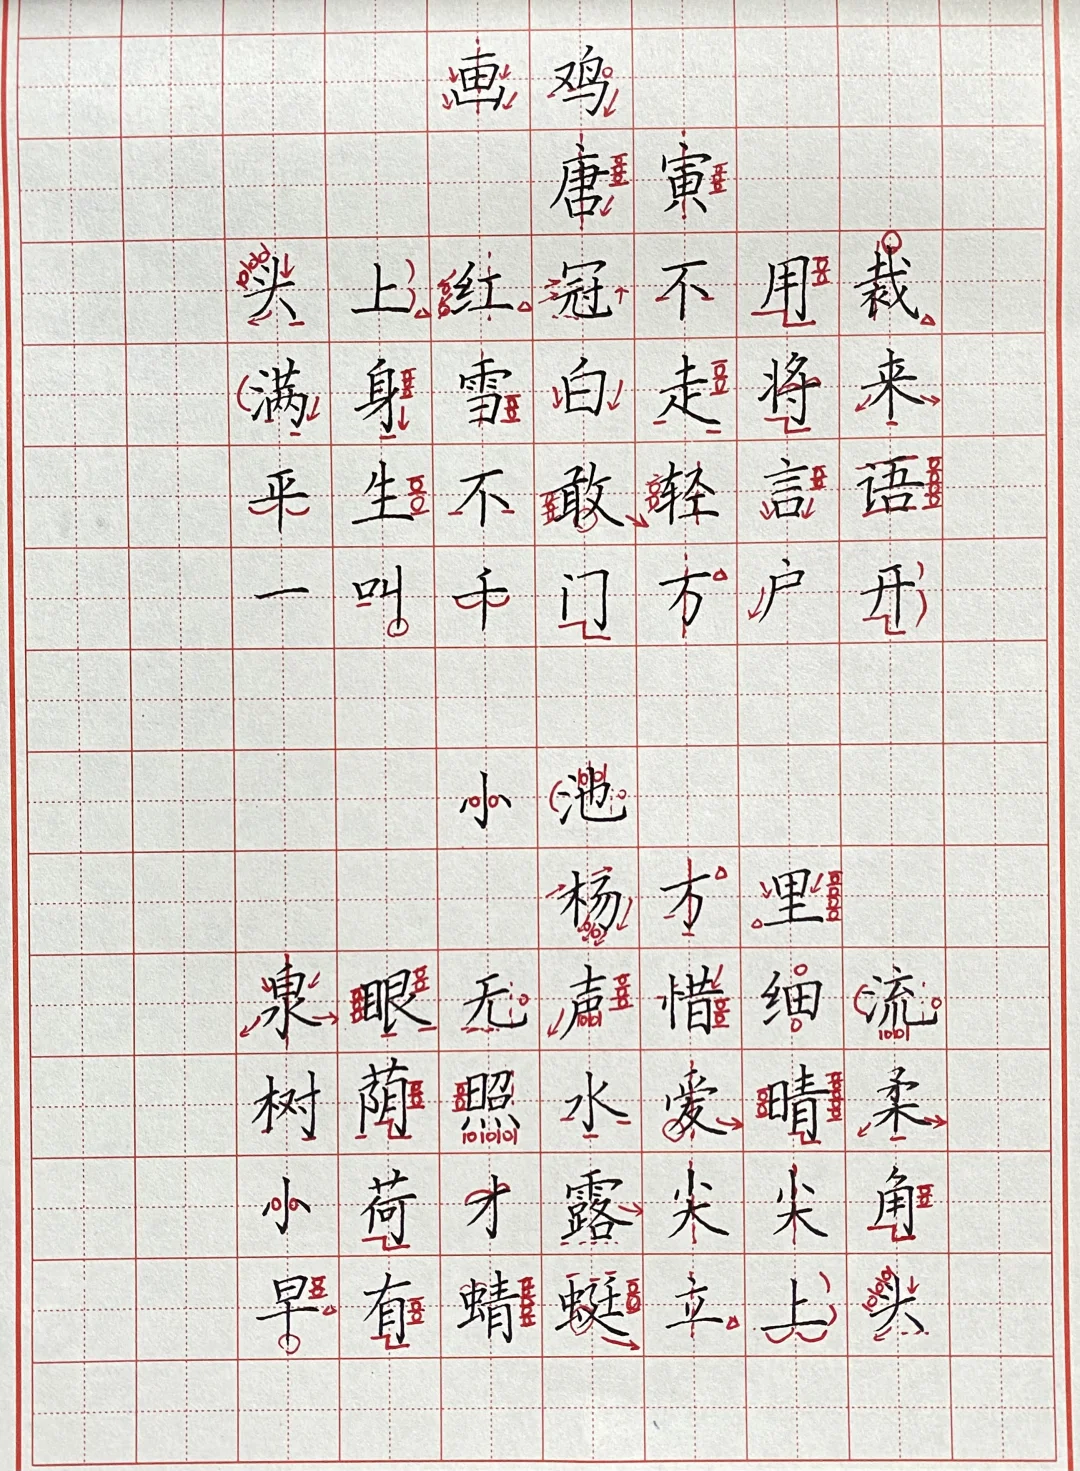 画鸡
唐寅
头上红冠不用裁
满身雪白走将来
平生不敢轻言语
一叫千门万户开
小池
杨万里
泉眼无声惜细流
树荫照水爱晴柔
小荷才露尖尖角
早有蜻蜓立上头